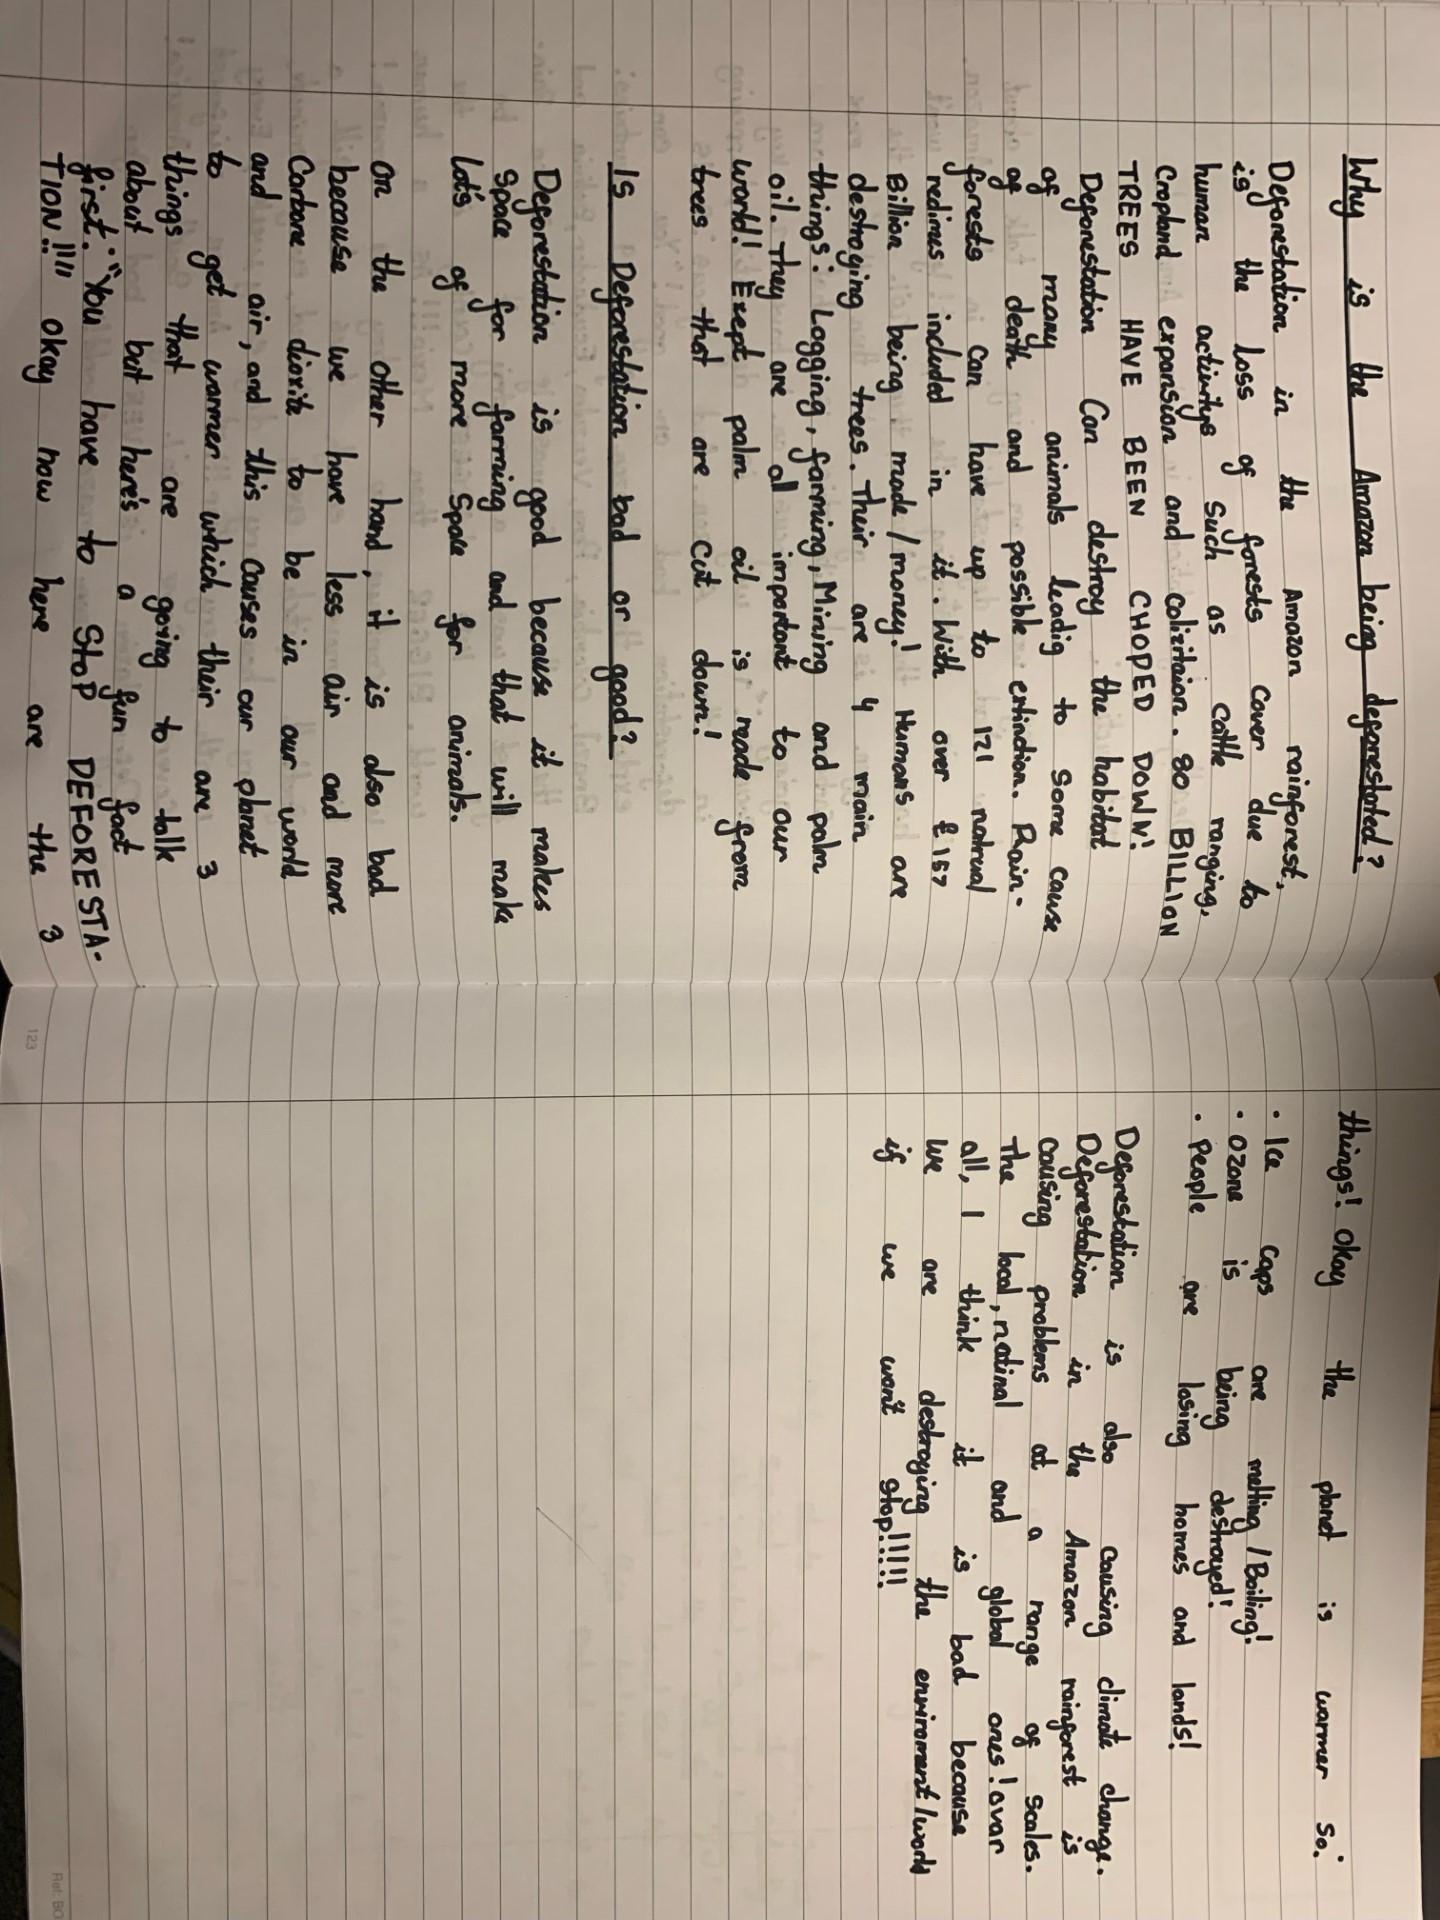 Why is the Amazon being deforestated?
Deforestation in the Amazon rainforest,
is the loss of forests cover due to
human activitys such as cattle ranging,
Cropland expansion and colizitaion. 80 BILLION
TREES HAVE BEEN CHOPED DOWN!
Deforestation Can destroy the habitat
of many animals leadig to some cause
of death and possible extinction. Rain-
forests can have up to 121 natrual
redimes included in it. With over £157
Billion being made/money! Humans are
destroying trees. Their are 4 main
things: Logging, farming, Mining and palm
oil. They are all important to our
world! Exept palm oil is made from
trees that are cut down!
Is Deforestation bad or good?
Deforestation is good because it makes
space for farming and that will make
lot's of more space for animals.
On the other hand, it is also bad
because we have less air and more
Carbone dioxite to be in our world
and air, and this causes our planet
to get warmer which their are 3
things that are going to talk
about but here's a fun fact
first: "You have to StoP DEFORESTA-
TION!!!!! okay now here are the 3
123
things! Okay the planet is warmer so:
• Ice caps are melting/Boiling!
• Ozone is being destroyed!
• People are losing homes and lands!
Deforestation is also causing climate change.
Deforestation in the Amazon rainforest is
causing problems at a range of scales.
The local, natinal and global ones! ovar
all, I think it is bad because
We are destroying the enviroment/world
if we won't stop!!!!!
Ref: BO